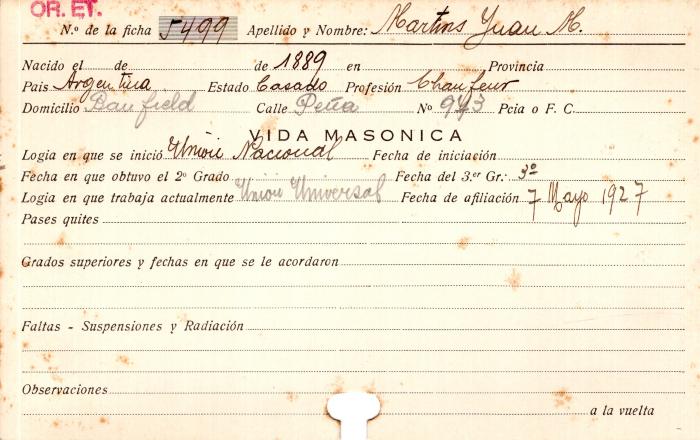 OR. ET.
N.º de la ficha 5499 Apellido y Nombre: Martins Juan M.
Nacido el de de 1889 en Provincia
Pais Argentina Estado Casado Profesión Chaufeur
Domicilio Banfield Calle Peña Nº 943 Pcia o F. C.
VIDA MASONICA
Logia en que se inició Unión Nacional Fecha de iniciación
Fecha en que obtuvo el 2º Grado Fecha del 3.er Gr.: 3º
Logia en que trabaja actualmente Unión Universal Fecha de afiliación 7 Mayo 1927
Pases quites
Grados superiores y fechas en que se le acordaron
Faltas - Suspensiones y Radiación
Observaciones
a la vuelta